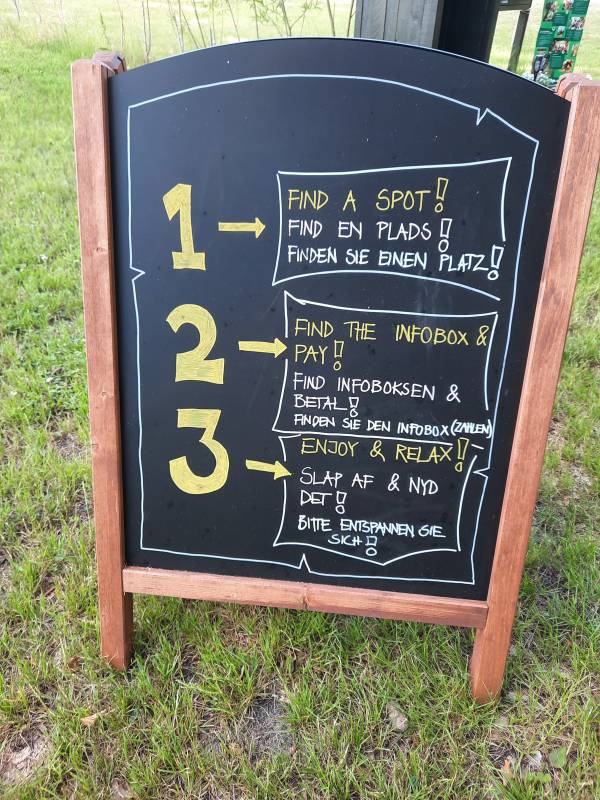 1
FIND A SPOT!
FIND EN PLADS!
FINDEN SIE EINEN PLATZ!
2
FIND THE INFOBOX &
PAY!
FIND INFOBOKSEN &
BETAL!
FINDEN SIE DEN INFOBOX (ZAHLEN)
3
ENJOY & RELAX!
SLAP AF & NYD
DET!
BITTE ENTSPANNEN SIE
SICH!